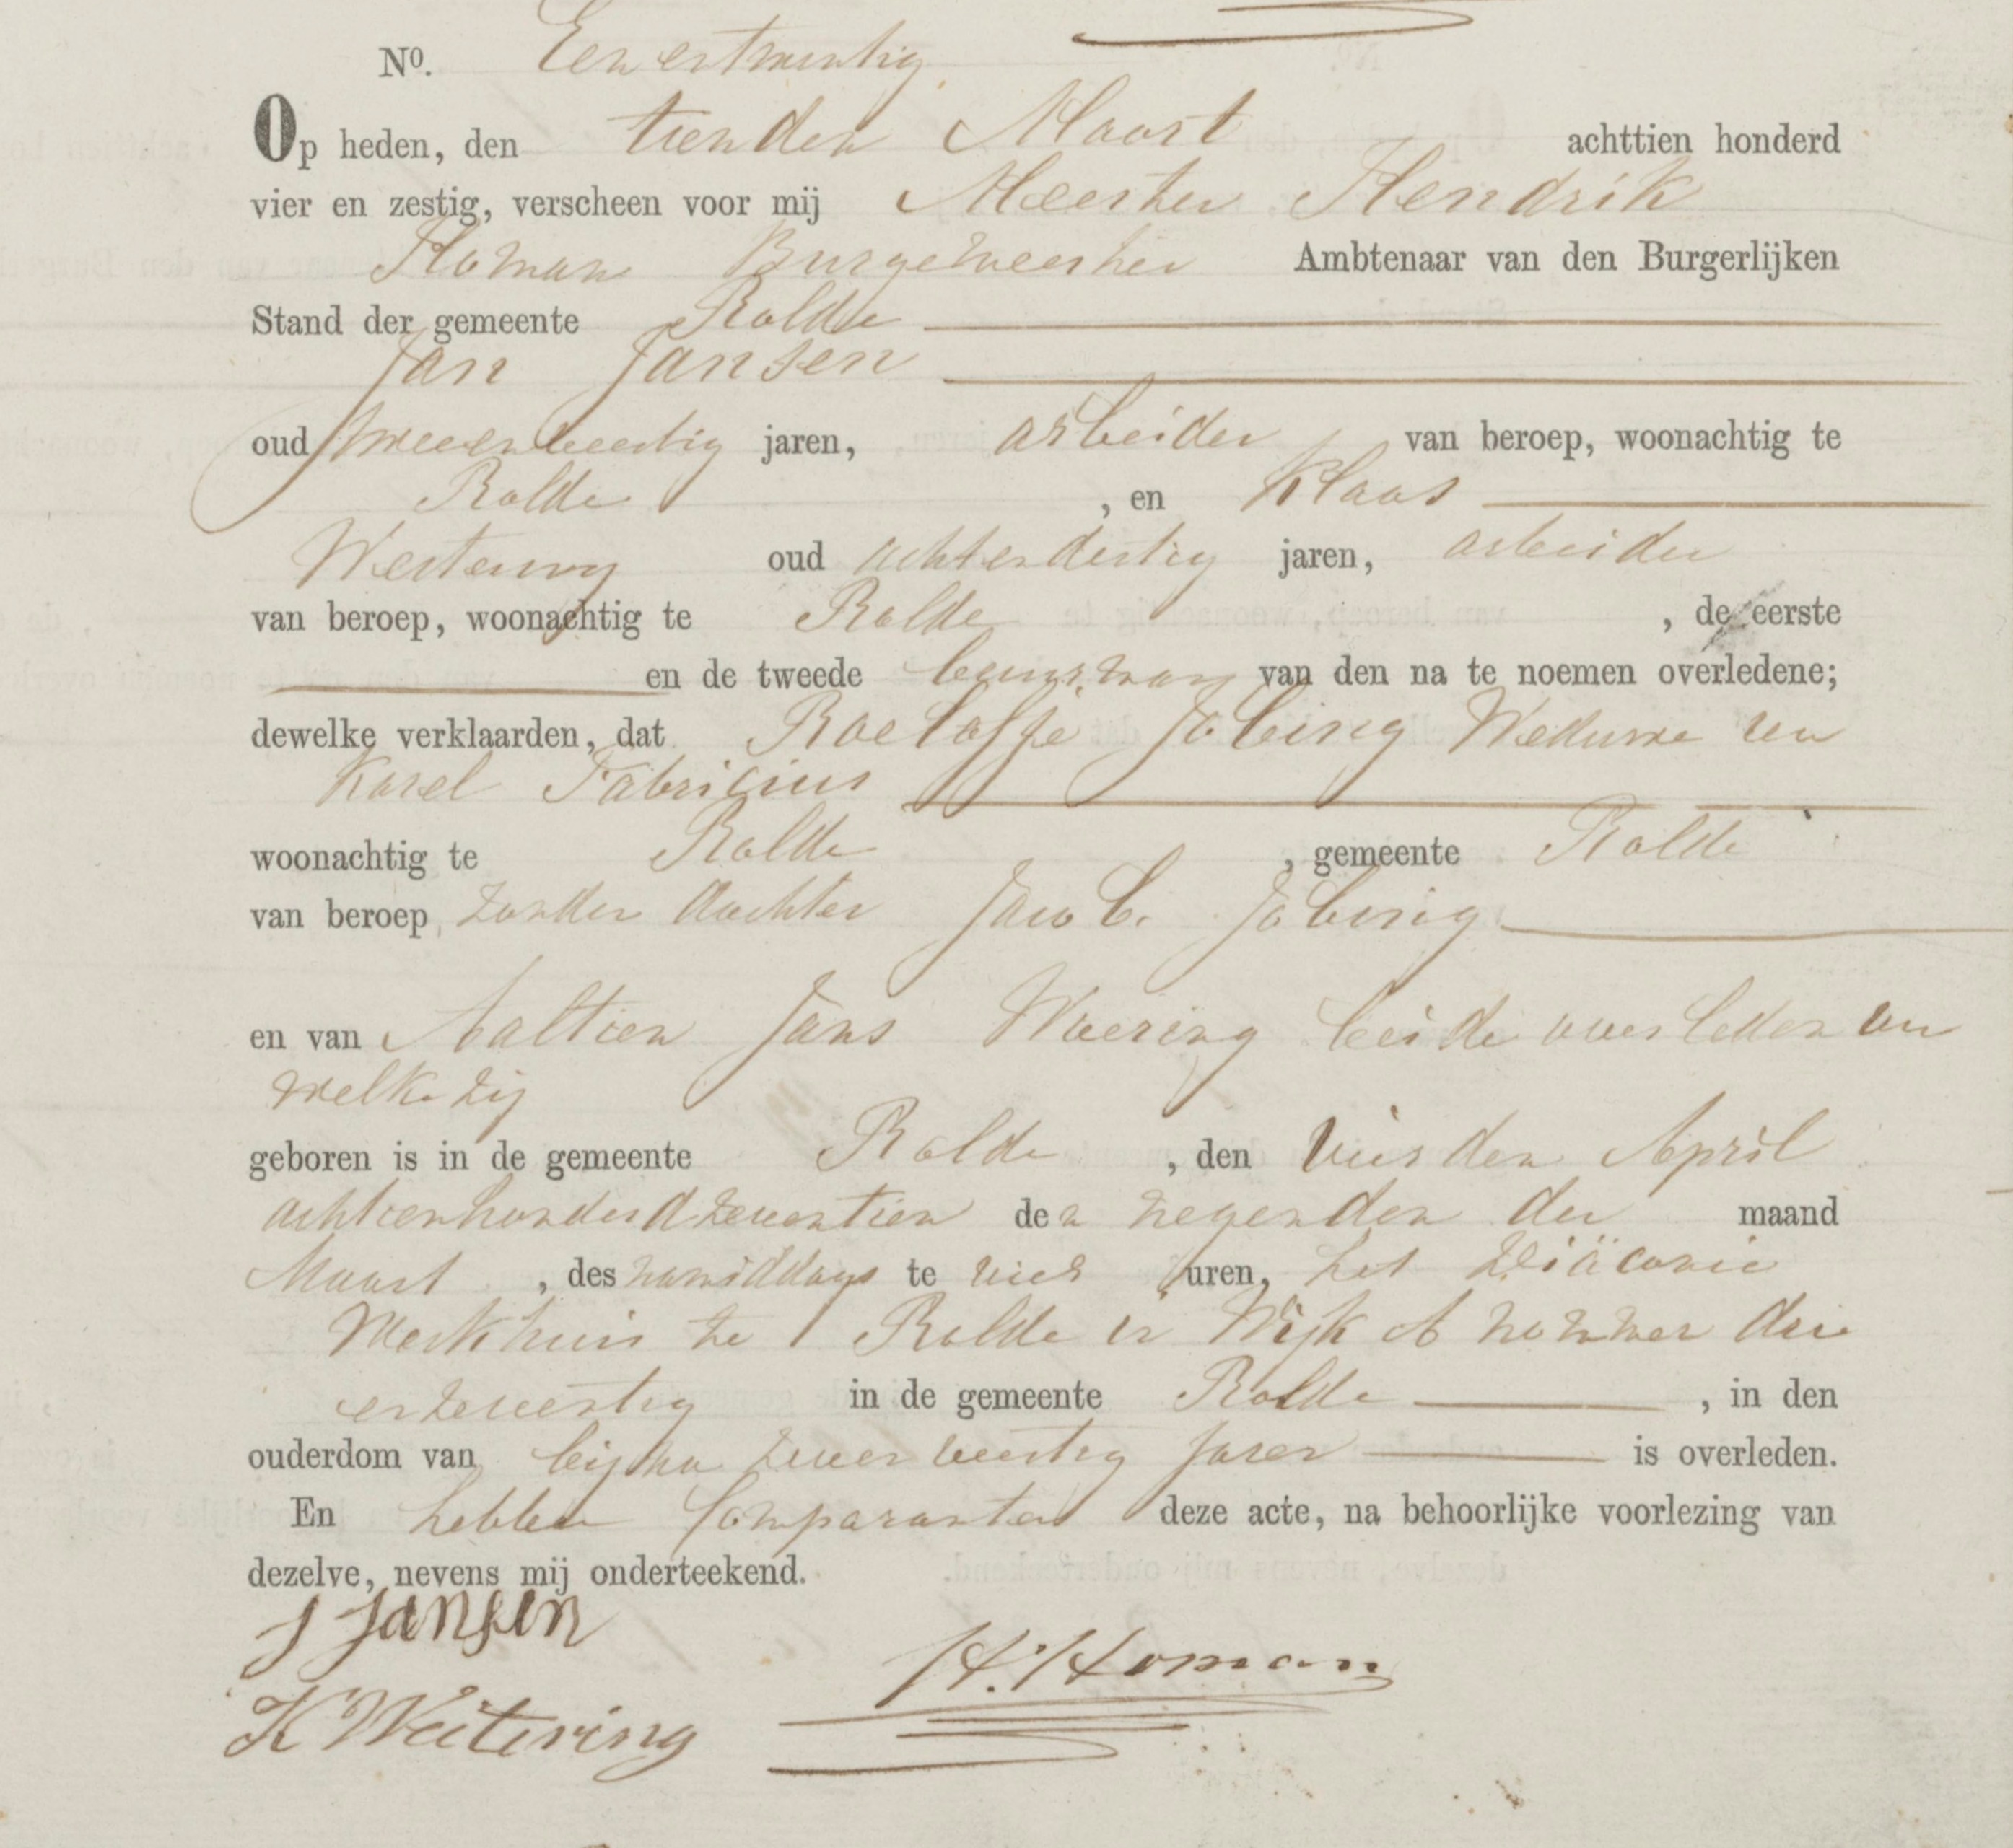 No. Een en twintig
Op heden, den tienden Maart achttien honderd
vier en zestig, verscheen voor mij Meester Hendrik
Homan Burgemeester Ambtenaar van den Burgerlijken
Stand der gemeente Rolde
Jan Jansen
oud tweeenveertig jaren, arbeider van beroep, woonachtig te
Rolde , en Klaas
Westering oud achtendertig jaren, arbeider
van beroep, woonachtig te Rolde , de eerste
en de tweede van den na te noemen overledene;
dewelke verklaarden, dat Roelofje Jobing Weduwe van
Karel Fabricius
woonachtig te Rolde , gemeente Rolde
van beroep, zonder dochter Jacob Jobing
en van Aaltien Jans Woering beide overleden en
welke zij
geboren is in de gemeente Rolde , den vierden April
achttienhonderd zeventien den negenden der maand
Maart , des namiddags te vier uren, het Diäconie
Werkhuis te Rolde in Wijk A nommer drie
en zeventig in de gemeente Rolde , in den
ouderdom van bijna zeven veertig Jaren is overleden.
En hebben Comparanten deze acte, na behoorlijke voorlezing van
dezelve, nevens mij onderteekend.
J Jansen
H. Homan
K Weitering